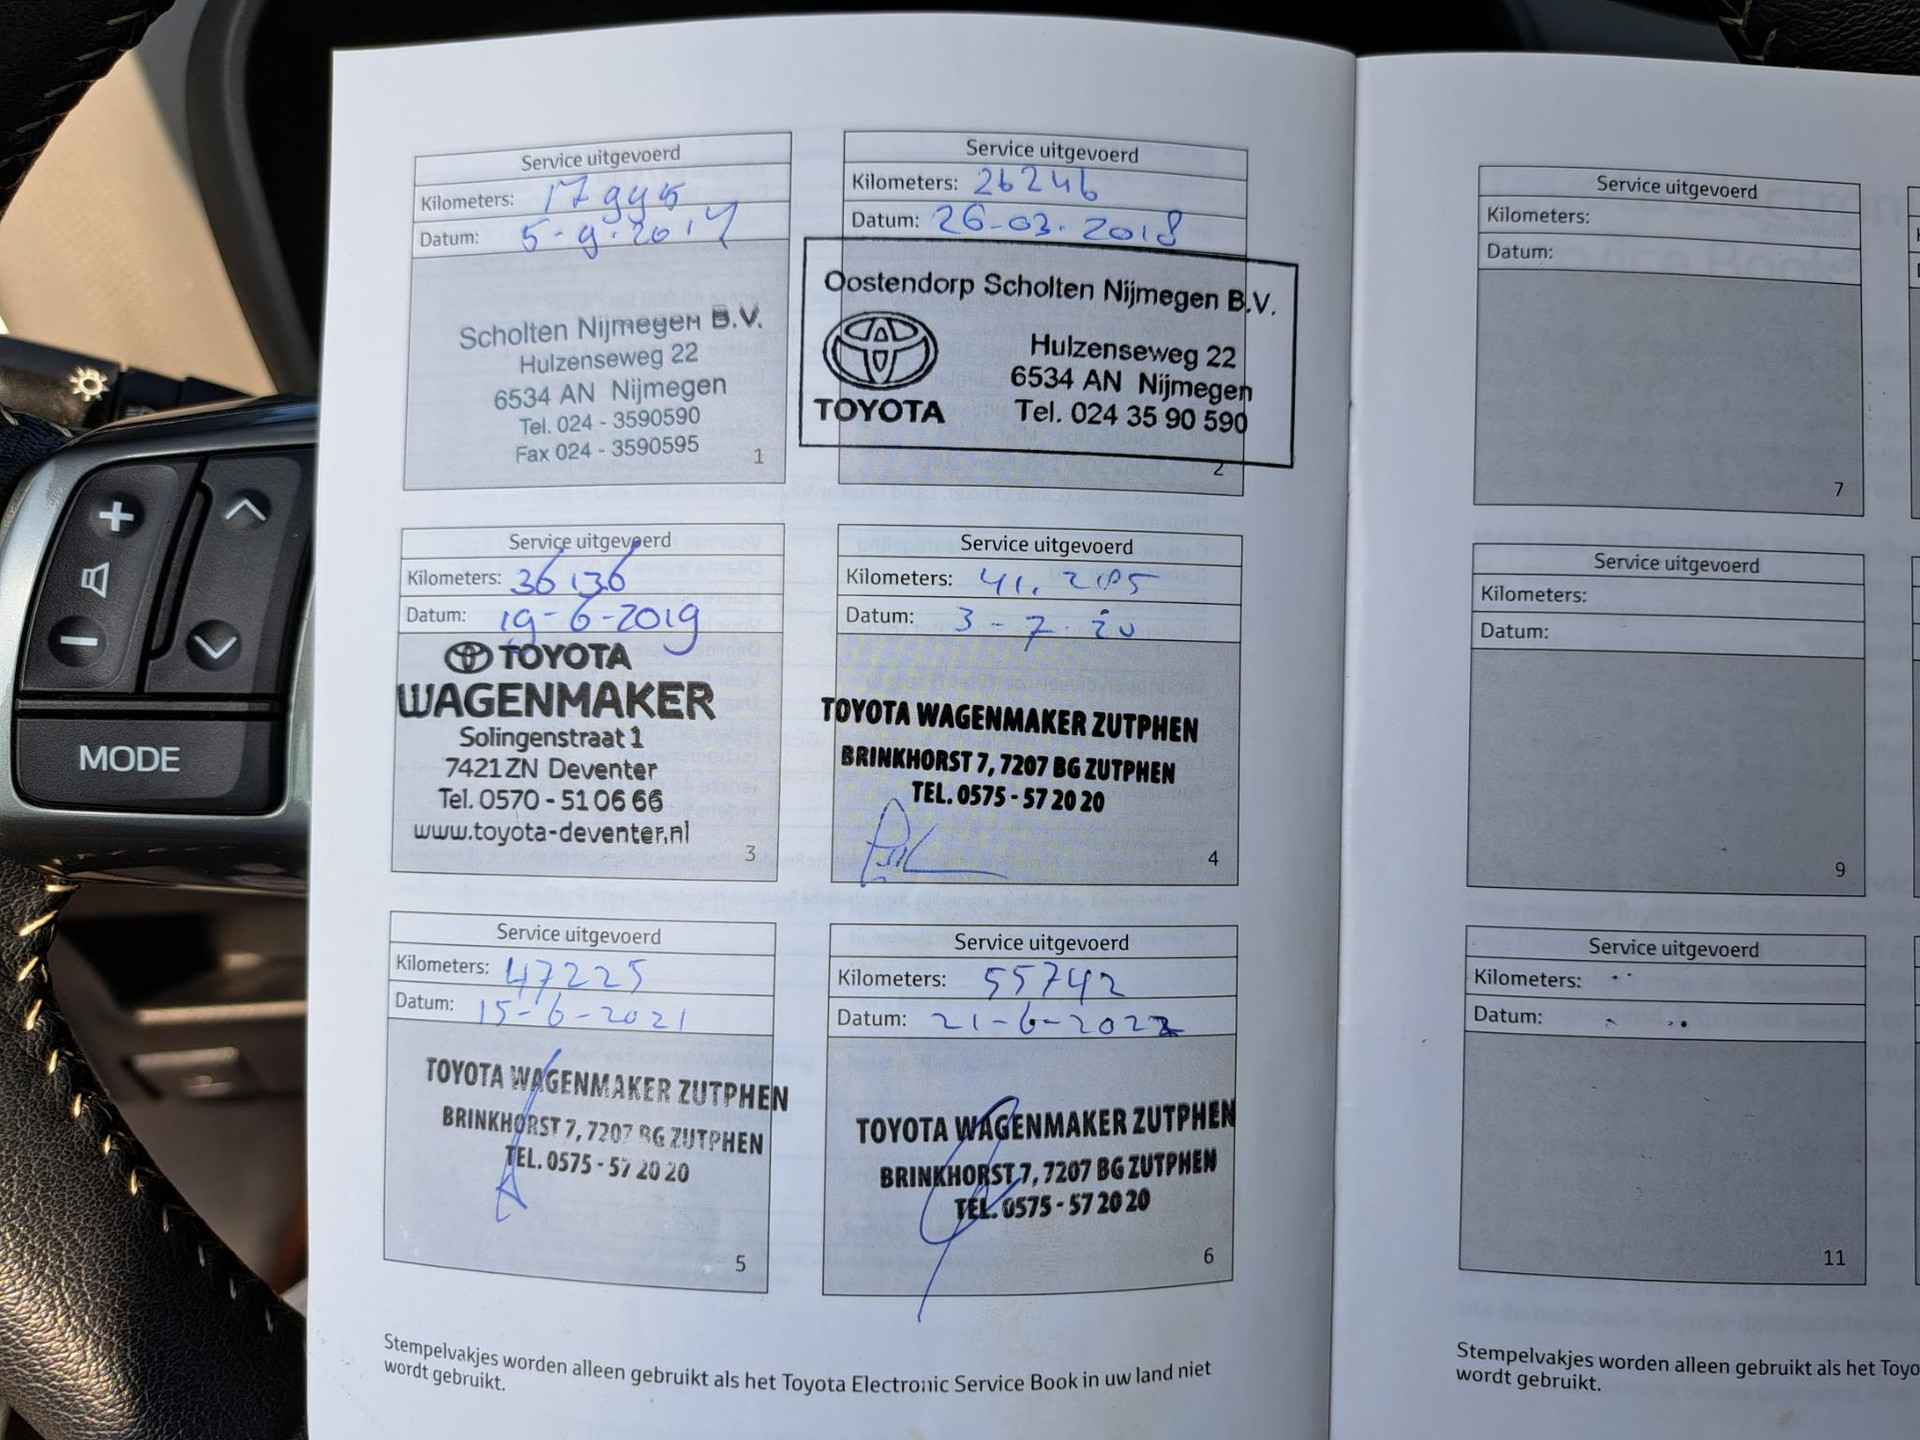 Service uitgevoerd
Kilometers:
Datum: 5-9-2017
Scholten Nijmegen B.V.
Hulzenseweg 22
6534 AN Nijmegen
Tel. 024 - 3590590
Fax 024 - 3590595
1
Service uitgevoerd
Kilometers: 26246
Datum: 26-03-2018
Oostendorp Scholten Nijmegen B.V.
TOYOTA
Hulzenseweg 22
6534 AN Nijmegen
Tel. 024 35 90 590
2
Service uitgevoerd
Kilometers: 36136
Datum: 19-6-2019
TOYOTA
WAGENMAKER
Solingenstraat 1
7421 ZN Deventer
Tel. 0570 - 51 06 66
www.toyota-deventer.nl
3
Service uitgevoerd
Kilometers:
Datum: 3-7-20
TOYOTA WAGENMAKER ZUTPHEN
BRINKHORST 7, 7207 BG ZUTPHEN
TEL. 0575 - 57 20 20
4
Service uitgevoerd
Kilometers: 47225
Datum: 15-6-2021
TOYOTA WAGENMAKER ZUTPHEN
BRINKHORST 7, 7207 BG ZUTPHEN
TEL. 0575 - 57 20 20
5
Service uitgevoerd
Kilometers: 55742
Datum: 21-6-2022
TOYOTA WAGENMAKER ZUTPHEN
BRINKHORST 7, 7207 BG ZUTPHEN
TEL. 0575 - 57 20 20
6
Stempelvakjes worden alleen gebruikt als het Toyota Electronic Service Book in uw land niet
wordt gebruikt.
Service uitgevoerd
Kilometers:
Datum:
7
Service uitgevoerd
Kilometers:
Datum:
9
Service uitgevoerd
Kilometers:
Datum:
11
Stempelvakjes worden alleen gebruikt als het Toyo
wordt gebruikt.
MODE